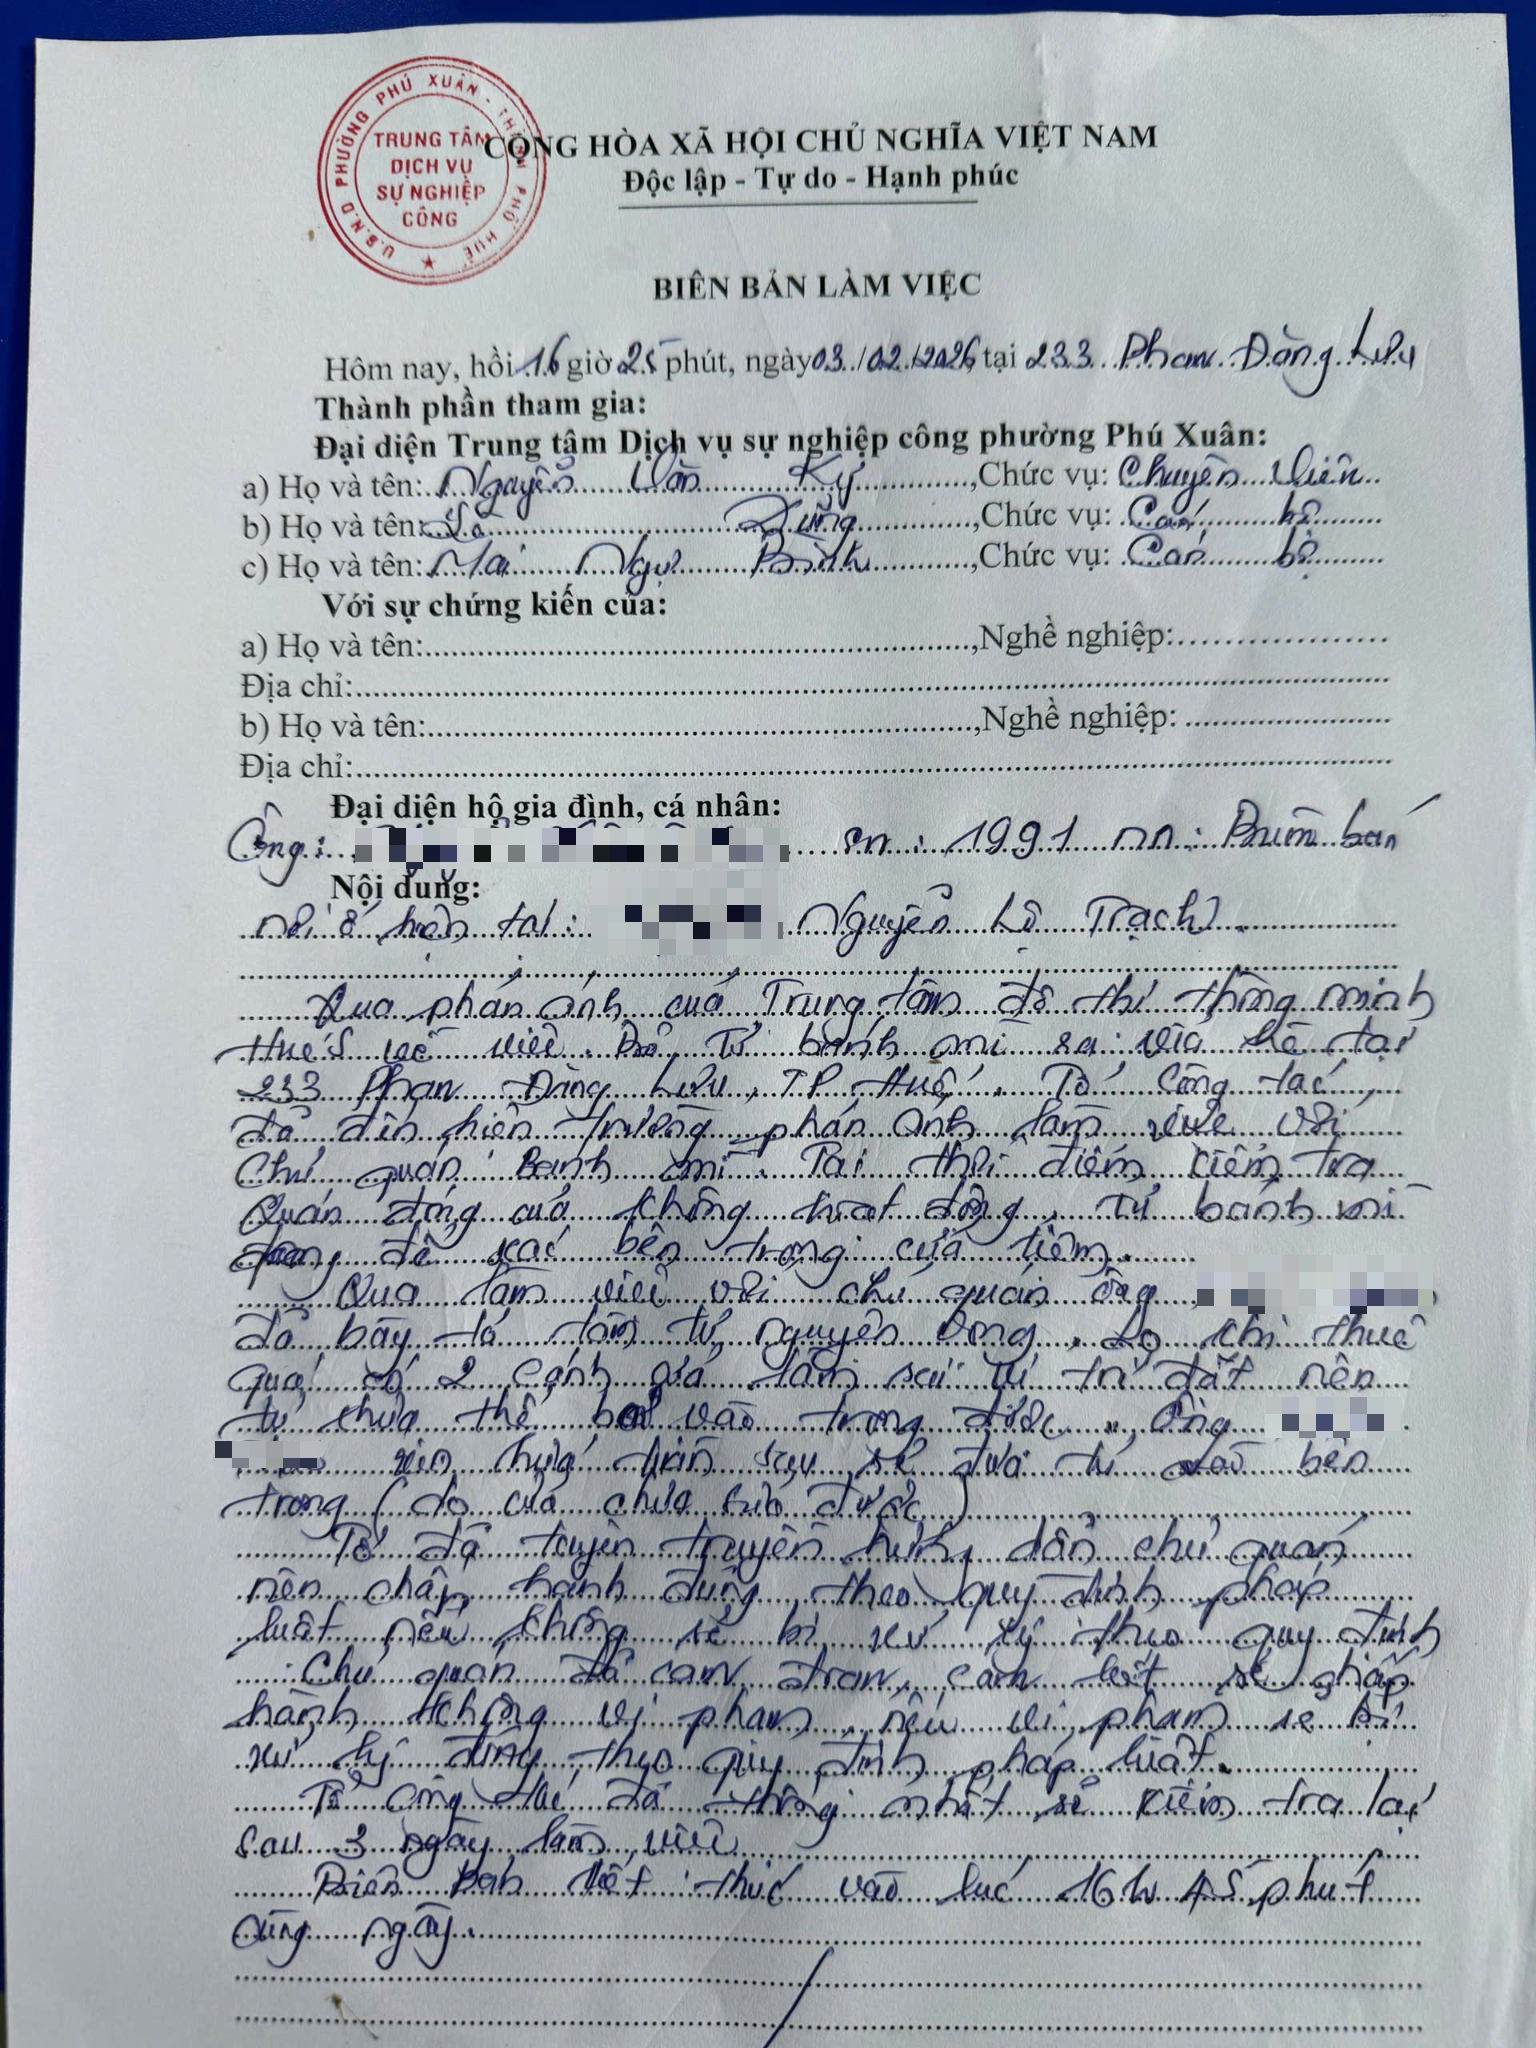 U.B.N.D PHƯỜNG PHÚ XUÂN - THÀNH PHỐ HUẾ
TRUNG TÂM
DỊCH VỤ
SỰ NGHIỆP
CÔNG
CỘNG HÒA XÃ HỘI CHỦ NGHĨA VIỆT NAM
Độc lập - Tự do - Hạnh phúc
BIÊN BẢN LÀM VIỆC
Hôm nay, hồi 16 giờ 25 phút, ngày 03/02/2026, tại 233 Phan Đăng Lưu
Thành phần tham gia:
Đại diện Trung tâm Dịch vụ sự nghiệp công phường Phú Xuân:
a) Họ và tên: Nguyễn Văn Kỳ, Chức vụ: Chuyên viên
b) Họ và tên: Dũng, Chức vụ: Cán bộ
c) Họ và tên: Mai Ngự Bình, Chức vụ: Cán bộ
Với sự chứng kiến của:
a) Họ và tên:, Nghề nghiệp:
Địa chỉ:
b) Họ và tên:, Nghề nghiệp:
Địa chỉ:
Đại diện hộ gia đình, cá nhân:
Ông: sn: 1991 nn: Buôn bán
Nội dung:
nơi ở hiện tại: Nguyễn Lộ Trạch
Qua phản ánh của Trung tâm đô thị thông minh
HueS về việc Để Tủ bánh mì ra vỉa hè tại
233 Phan Đăng Lưu, TP Huế. Tổ công tác
đã đến hiện trường phản ánh làm việc với
chủ quán Bánh mì. Tại thời điểm kiểm tra
Quán đóng cửa không hoạt động, Tủ bánh mì
đang để sát bên trong cửa tiệm.
Qua làm việc với chủ quán ông
đã bày tỏ tâm tư nguyện vọng. Do khi thuê
quá có 2 cánh giá làm sai vị trí đặt nên
tủ chưa thể bỏ vào trong được. Ông
xin hứa trần sau sẽ đưa tủ vào bên
trong (do cửa chưa sửa được)
Tổ đã tuyên truyền hướng dẫn chủ quán
nên chấp hành đúng theo quy định pháp
luật nếu không sẽ bị xử lý theo quy định
Chủ quán đã cam đoan, cam kết sẽ chấp
hành không vi phạm, nếu vi phạm sẽ bị
xử lý đúng theo quy định pháp luật.
Tổ công tác đã thống nhất sẽ kiểm tra lại
sau 3 ngày làm việc
Biên bản kết thúc vào lúc 16h 45 phút
cùng ngày.